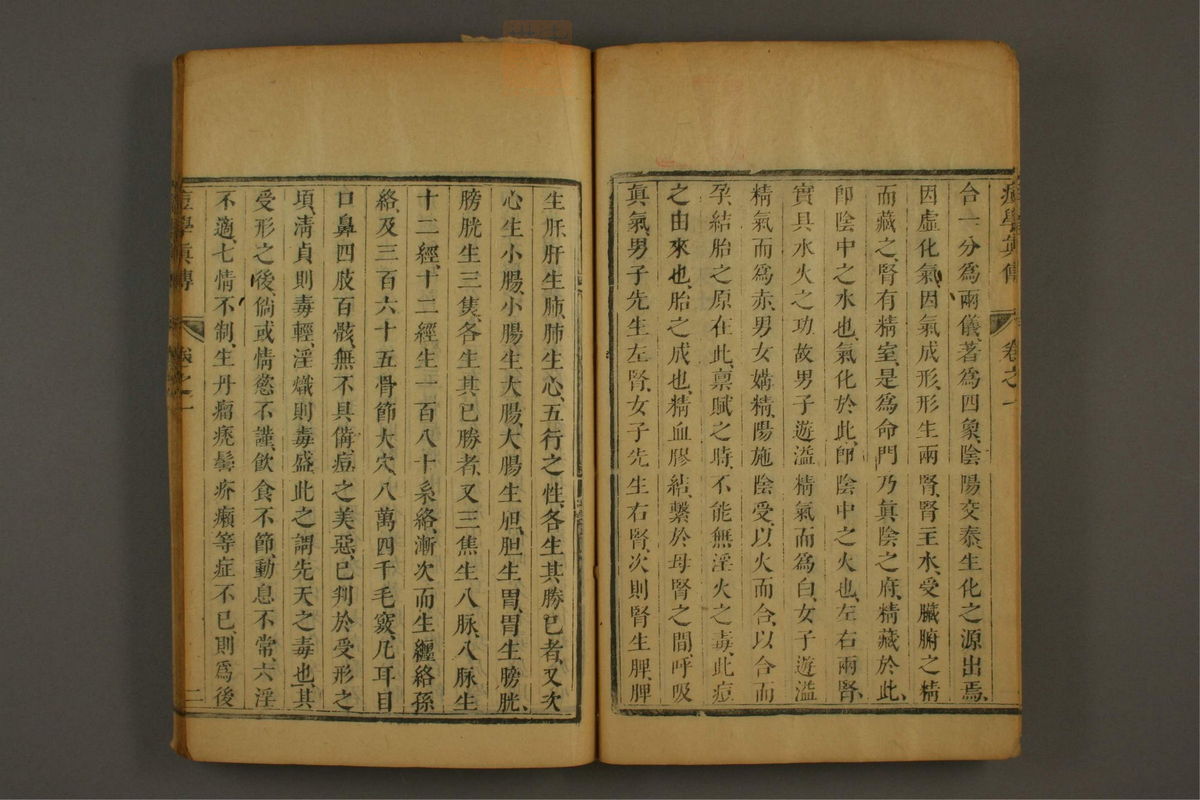 痘學真傳 卷之一
合一分爲兩儀、著爲四象、陰陽交泰、生化之源出焉、
因虛化氣、因氣成形、形生兩腎、腎王水、受臟腑之精
而藏之、腎有精室、是爲命門、乃眞陰之府、精藏於此、
卽陰中之水也、氣化於此、卽陰中之火也、左右兩腎、
實具水火之功、故男子遊溢精氣而爲白、女子遊溢
精氣而爲赤、男女媾精、陽施陰受、以火而合、以合而
孕、結胎之原在此、禀賦之時、不能無淫火之毒、此痘
之由來也、胎之成也、精血膠結、繫於母腎之間、呼吸
眞氣、男子先生左腎、女子先生右腎、次則腎生脾、脾
生肝、肝生肺、肺生心、五行之性、各生其勝己者、又次
心生小腸、小腸生大腸、大腸生胆、胆生胃、胃生膀胱、
膀胱生三焦、各生其已勝者、又三焦生八脉、八脉生
十二經、十二經生一百八十系絡、漸次而生纏絡孫
絡、及三百六十五骨節大穴、八萬四千毛竅、凡耳目
口鼻四肢百骸、無不具備、痘之美惡、已判於受形之
項、淸貞則毒輕、淫熾則毒盛、此之謂先天之毒也、其
受形之後、倘或情慾不謹、飮食不節、動息不常、六淫
不適、七情不制、生丹瘤疣鬁疥癩等症不已、則爲後
痘學眞傳 卷之一 二